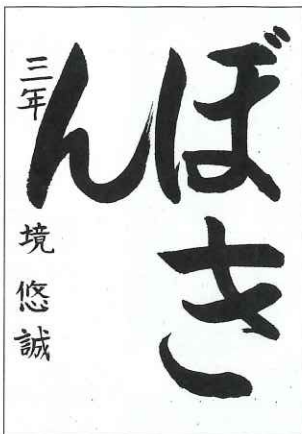 ぼき
ん
三年 境 悠誠